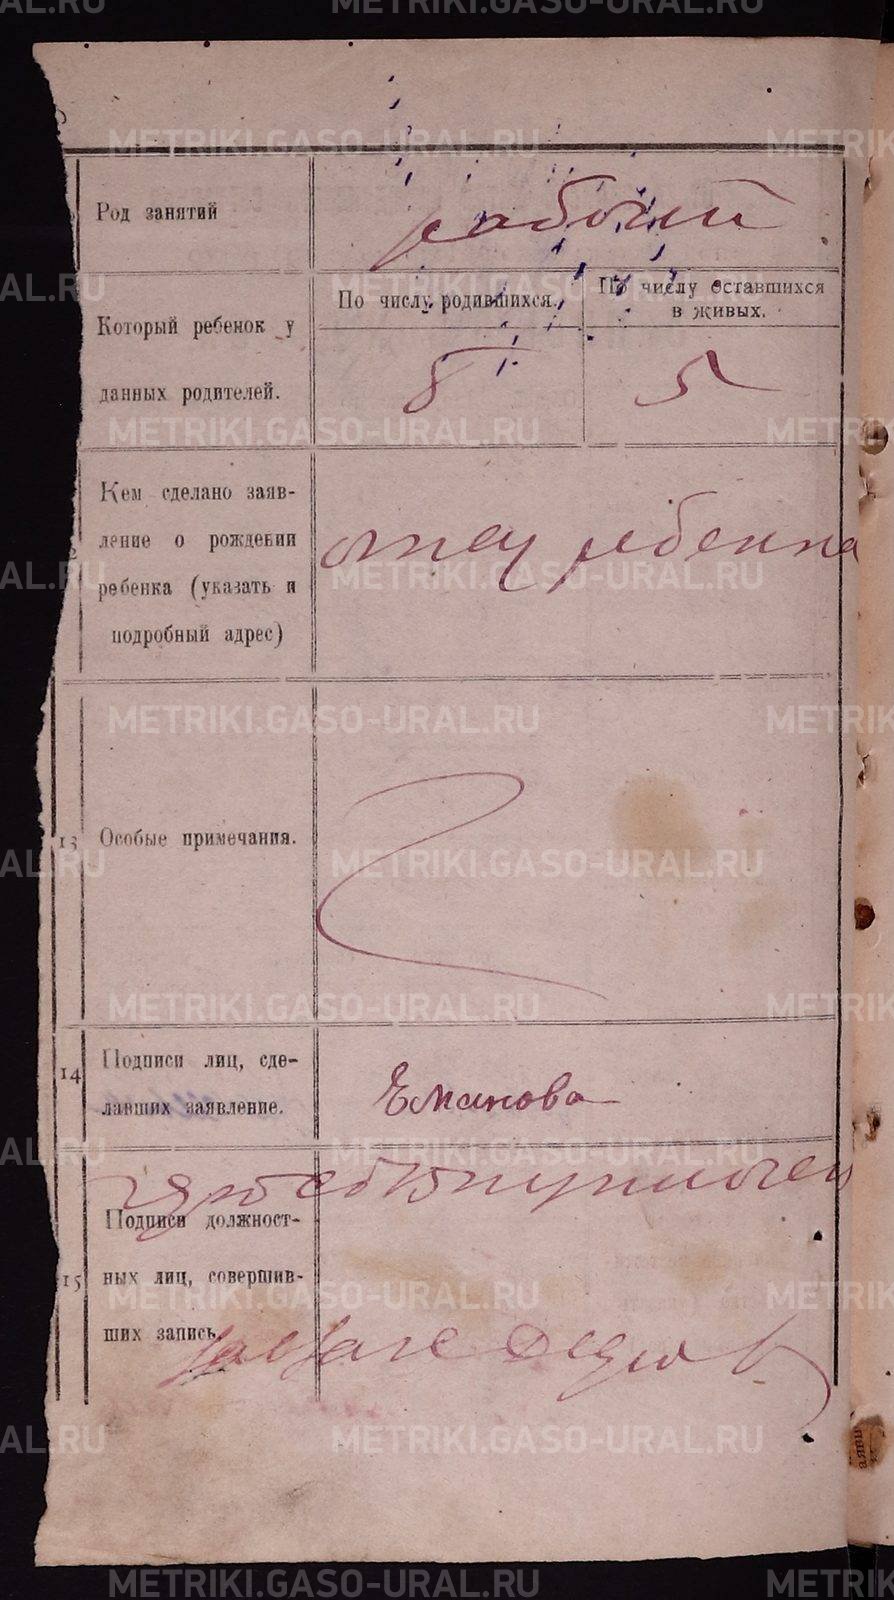 METRIKI.GASO-URAL.RU
Род занятий
рабочий
Который ребенок у
данных родителей.
По числу родившихся.
По числу оставшихся
в живых.
8
5
Кем сделано заяв-
ление о рождении
ребенка (указать и
подробный адрес)
отец ребенка
13 Особые примечания.
14 Подписи лиц, сде-
лавших заявление.
Еманова
15 Подписи должност-
ных лиц, совершив-
ших запись.